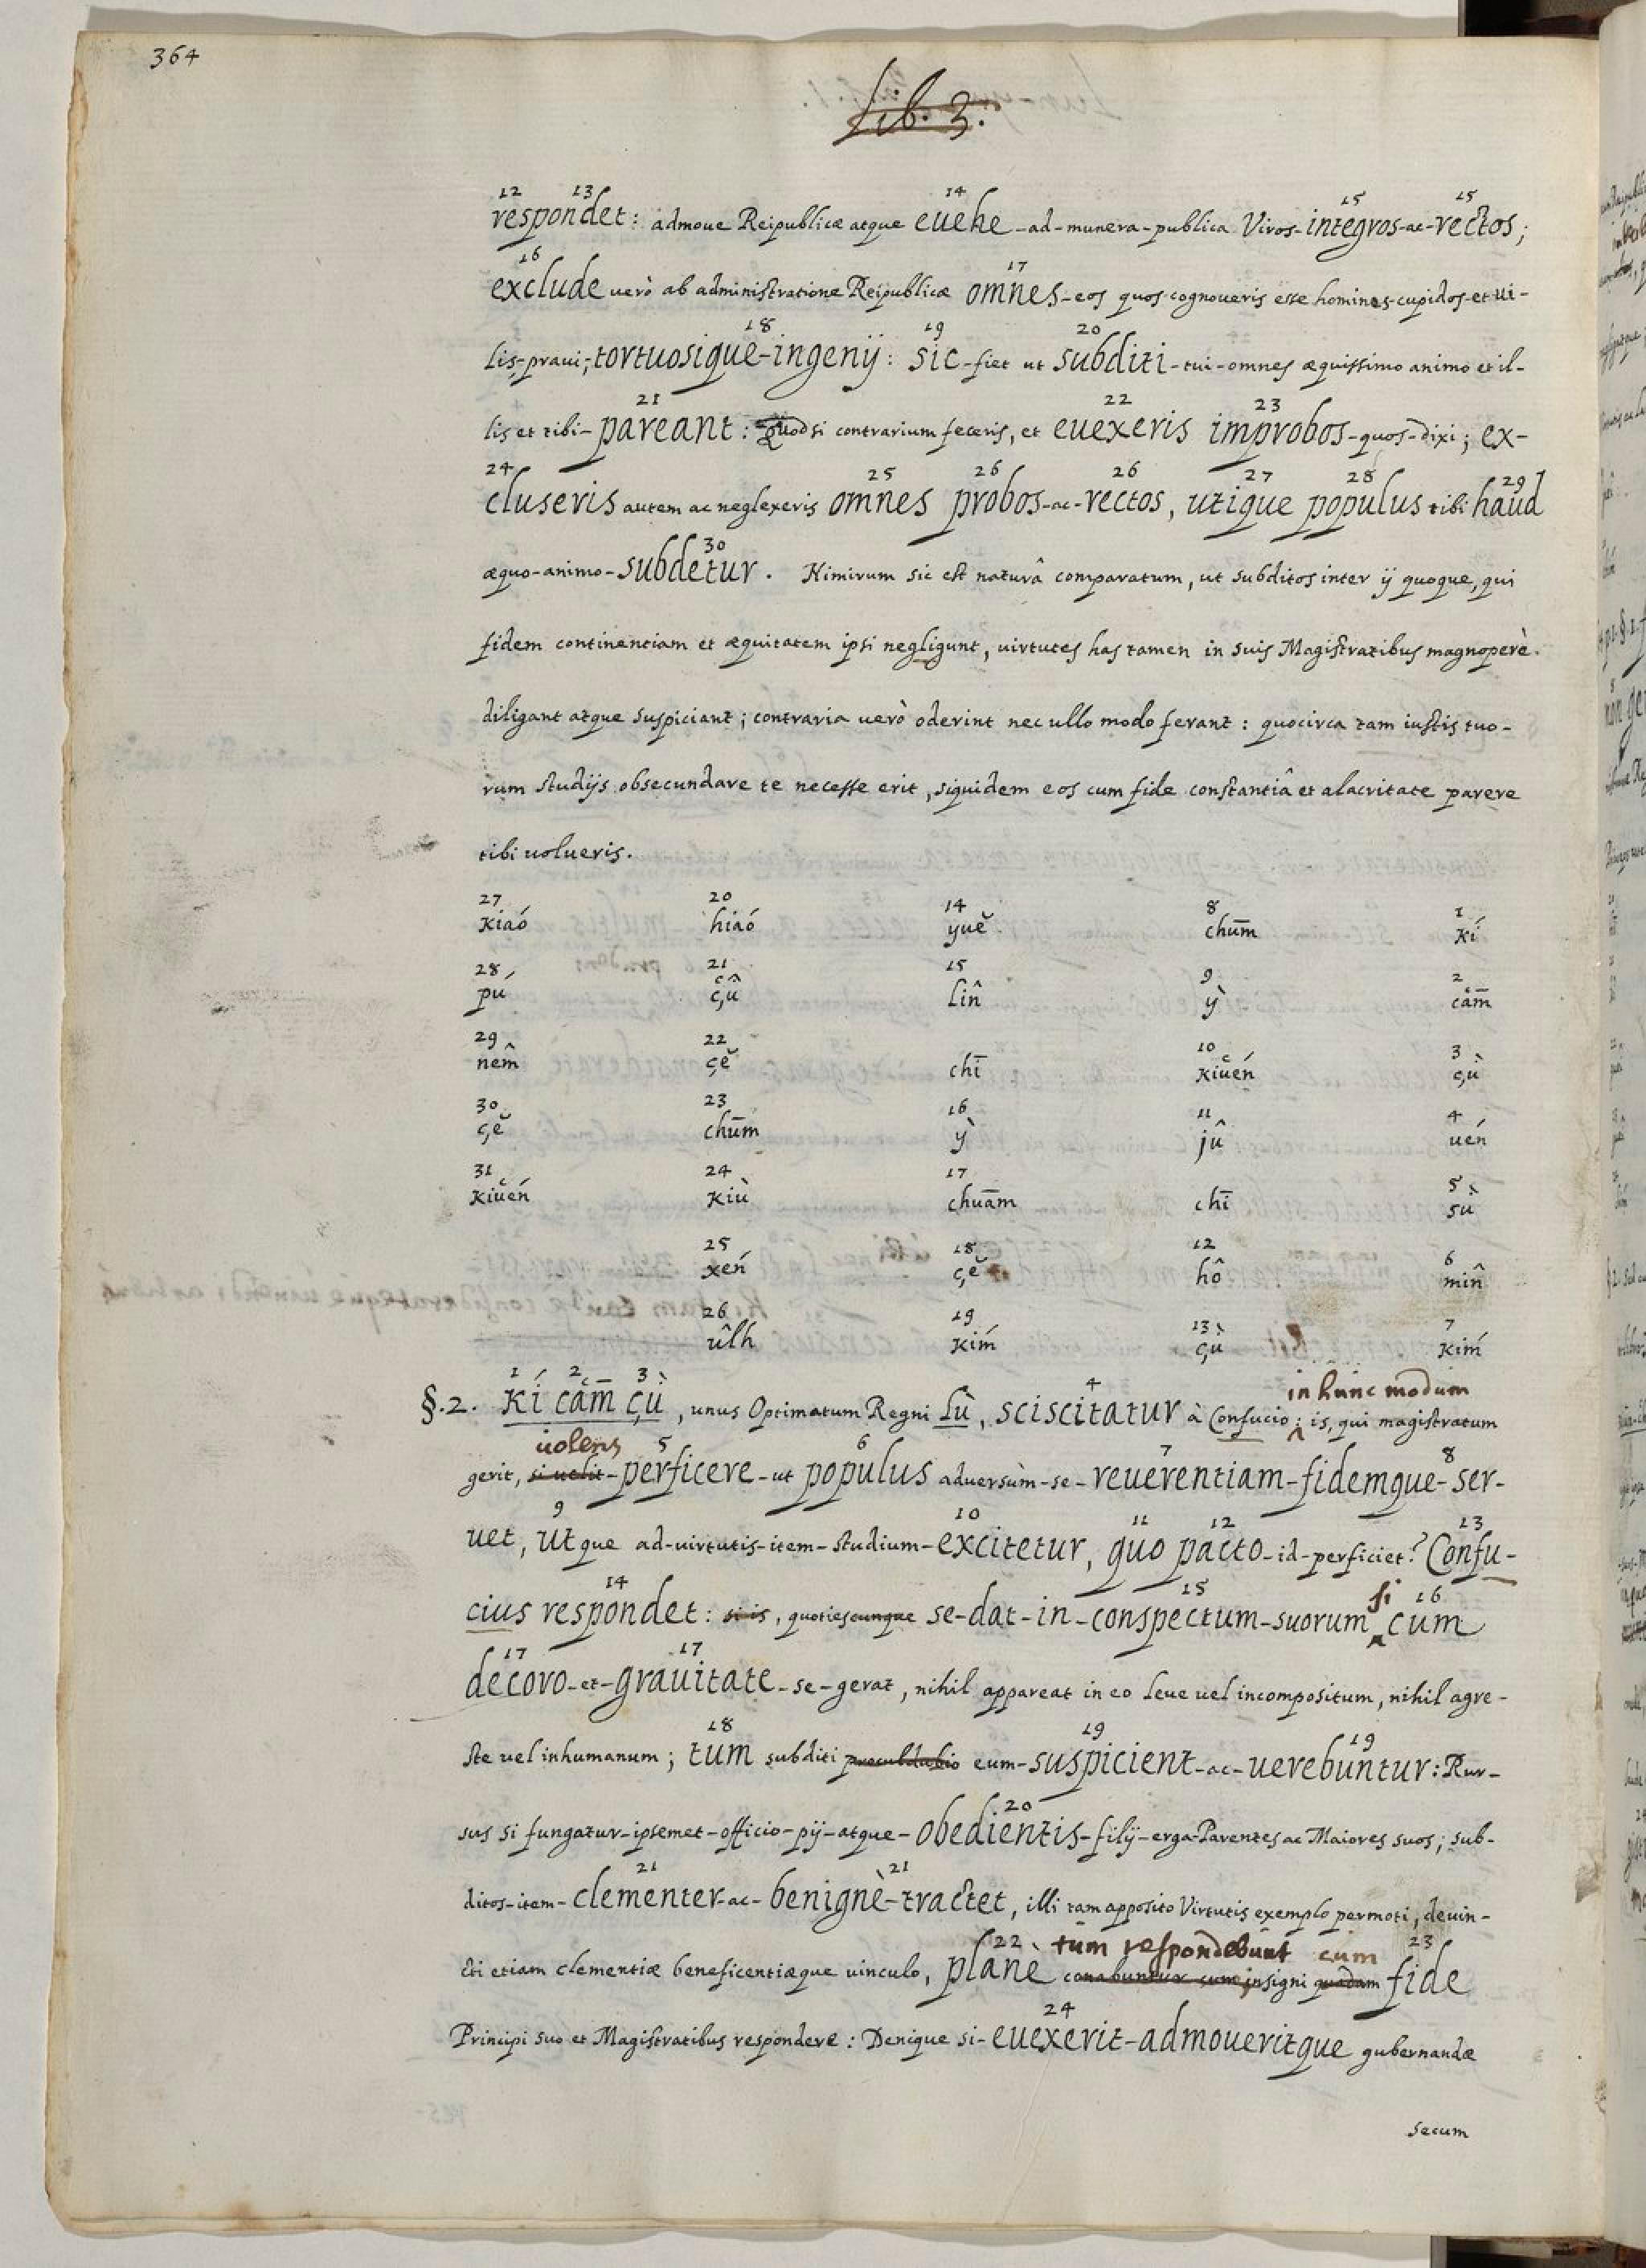 364
Lib. 3.
12 13 14 15 15
respondet: admoue Reipublicæ atque euehe-ad-munera-publica Viros-integros-ac-rectos;
16 17
exclude uerò ab administratione Reipublicæ omnes-eos quos-cognoueris esse homines-cupidos-et ui-
18 19 20
lis-praui-tortuosique-ingenij: sic-fiet ut subditi-tui-omnes æquissimo animo et il-
21 22 23
lis et tibi-pareant: Quod si contrarium feceris, et euexeris improbos-quos-dixi; ex-
24 25 26 26 27 28 29
cluseris autem ac neglexeris omnes probos-ac-rectos, utique populus tibi haud
30
æquo-animo-subdetur. Nimirum sic est naturâ comparatum, ut subditos inter ij quoque, qui
fidem continentiam et æquitatem ipsi negligunt, uirtutes has tamen in suis Magistratibus magnoperè
diligant atque suspiciant; contraria uerò oderint nec ullo modo ferant: quocirca tam iustis tuo-
rum studijs obsecundare te necesse erit, siquidem eos cum fide constantiâ et alacritate parere
tibi uolueris.
27 20 14 8 1
kiaó hiaó yuĕ chūm kí
28 21 15 9 2
pú çû lîn ỳ cām
29 22 10 3
nêm çĕ chī kiuén çù
30 23 16 11 4
çĕ chūm ỳ jû uén
31 24 17 5
kiuén kiù chuām chī sù
25 18 12 6
xén çĕ hô mîn
26 19 13 7
ûlh kím çù kím
1 2 3 4 in hunc modum
§.2. Kí cām çù, unus Optimatum Regni Lù, sciscitatur à Confucio: is, qui magistratum
uolens 5 6 7 8
gerit, si uelit-perficere-ut populus aduersùm-se-reuerentiam-fidemque-ser-
9 10 11 12 13
uet, utque ad-uirtutis-item-studium-excitetur, quo pacto-id-perficiet? Confu-
14 15 si 16
cius respondet: si is, quotiescunque se-dat-in-conspectum-suorum cum
17 17
decoro-et-grauitate-se-gerat, nihil appareat in eo leue uel incompositum, nihil agre-
18 19 19
ste uel inhumanum; tum subditi proculdubio eum-suspicient-ac-uerebuntur: Rur-
20
sus si fungatur-ipsemet-officio-pij-atque-obedientis-filij-erga-Parentes ac Maiores suos; sub-
21 21
ditos-item-clementer-ac-benignè-tractet, illi tam apposito Virtutis exemplo permoti, deuin-
22 tum respondebunt cum 23
cti etiam clementiæ beneficentiæque uinculo, planè conabuntur cum insigni quâdam fide
24
Principi suo et Magistratibus respondere: Denique si-euexerit-admoueritque gubernandæ
secum